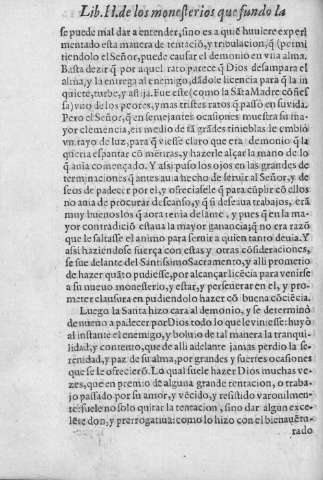 Lib. II. de los monesterios que fundo la
se puede mal dar a entender, sino es a quiē huuiere experi
mentado esta manera de tentaciō, y tribulacion, q̄ (permi
tiendolo el Señor, puede causar el demonio en vna alma.
Basta dezir q̄ por aquel rato parece q̄ Dios desampara el
alma, y la entrega al enemigo, dādole licencia para q̄ la in
quiete, turbe, y aflija. Fue este (como la Sāta Madre cōfies
sa) vno de los peores, y mas tristes ratos q̄ passō en su vida.
Pero el Señor, q̄ en semejantes ocasiones muestra su ma-
yor clemencia, en medio de tā grādes tinieblas le embiò
vn rayo de luz, para q̄ viesse claro que era demonio q̄ la
queria espantar cō mentiras, y hazerle alçar la mano de lo
q̄ auia començado. Y assi puso los ojos en las grandes de
terminaciones q̄ antes auia hecho de seruir al Señor, y de
seos de padecer por el, y ofreciasele q̄ para cūplir cō ellos
no auia de procurar descanso, y q̄ si desseaua trabajos, erā
muy buenos los q̄ aora tenia delāte, y pues q̄ en la ma-
yor contradiciō estaua la mayor ganancia; q̄ no era razō
que le faltasse el animo para seruir a quien tanto deuia. Y
assi haziendose fuerça con estas, y otras cōsideraciones,
se fue delante del Santissimo Sacramento, y alli prometio
de hazer quāto pudiesse, por alcançar licēcia para venirse
a su nueuo monesterio, y estar, y perseuerar en el, y pro-
meter clausura en pudiendolo hazer cō buena cōciēcia.
Luego la Santa hizo cara al demonio, y se determinò
de nueuo a padecer por Dios todo lo que le viniesse: huyò
al instante el enemigo, y boluio de tal manera la tranqui-
lidad, y contento, que de alli adelante jamas perdio la se-
renidad, y paz de su alma, por grandes y fuertes ocasiones
que se le ofrecierō. Lo qual suele hazer Dios muchas ve-
zes, que en premio de alguna grande tentacion, o traba-
jo passado por su amor, y vēcido, y resistido varonilmen-
te: suele no solo quitar la tentacion, sino dar algun exce-
lēte don, y prerrogatiua: como lo hizo con el bienauētu-
rado